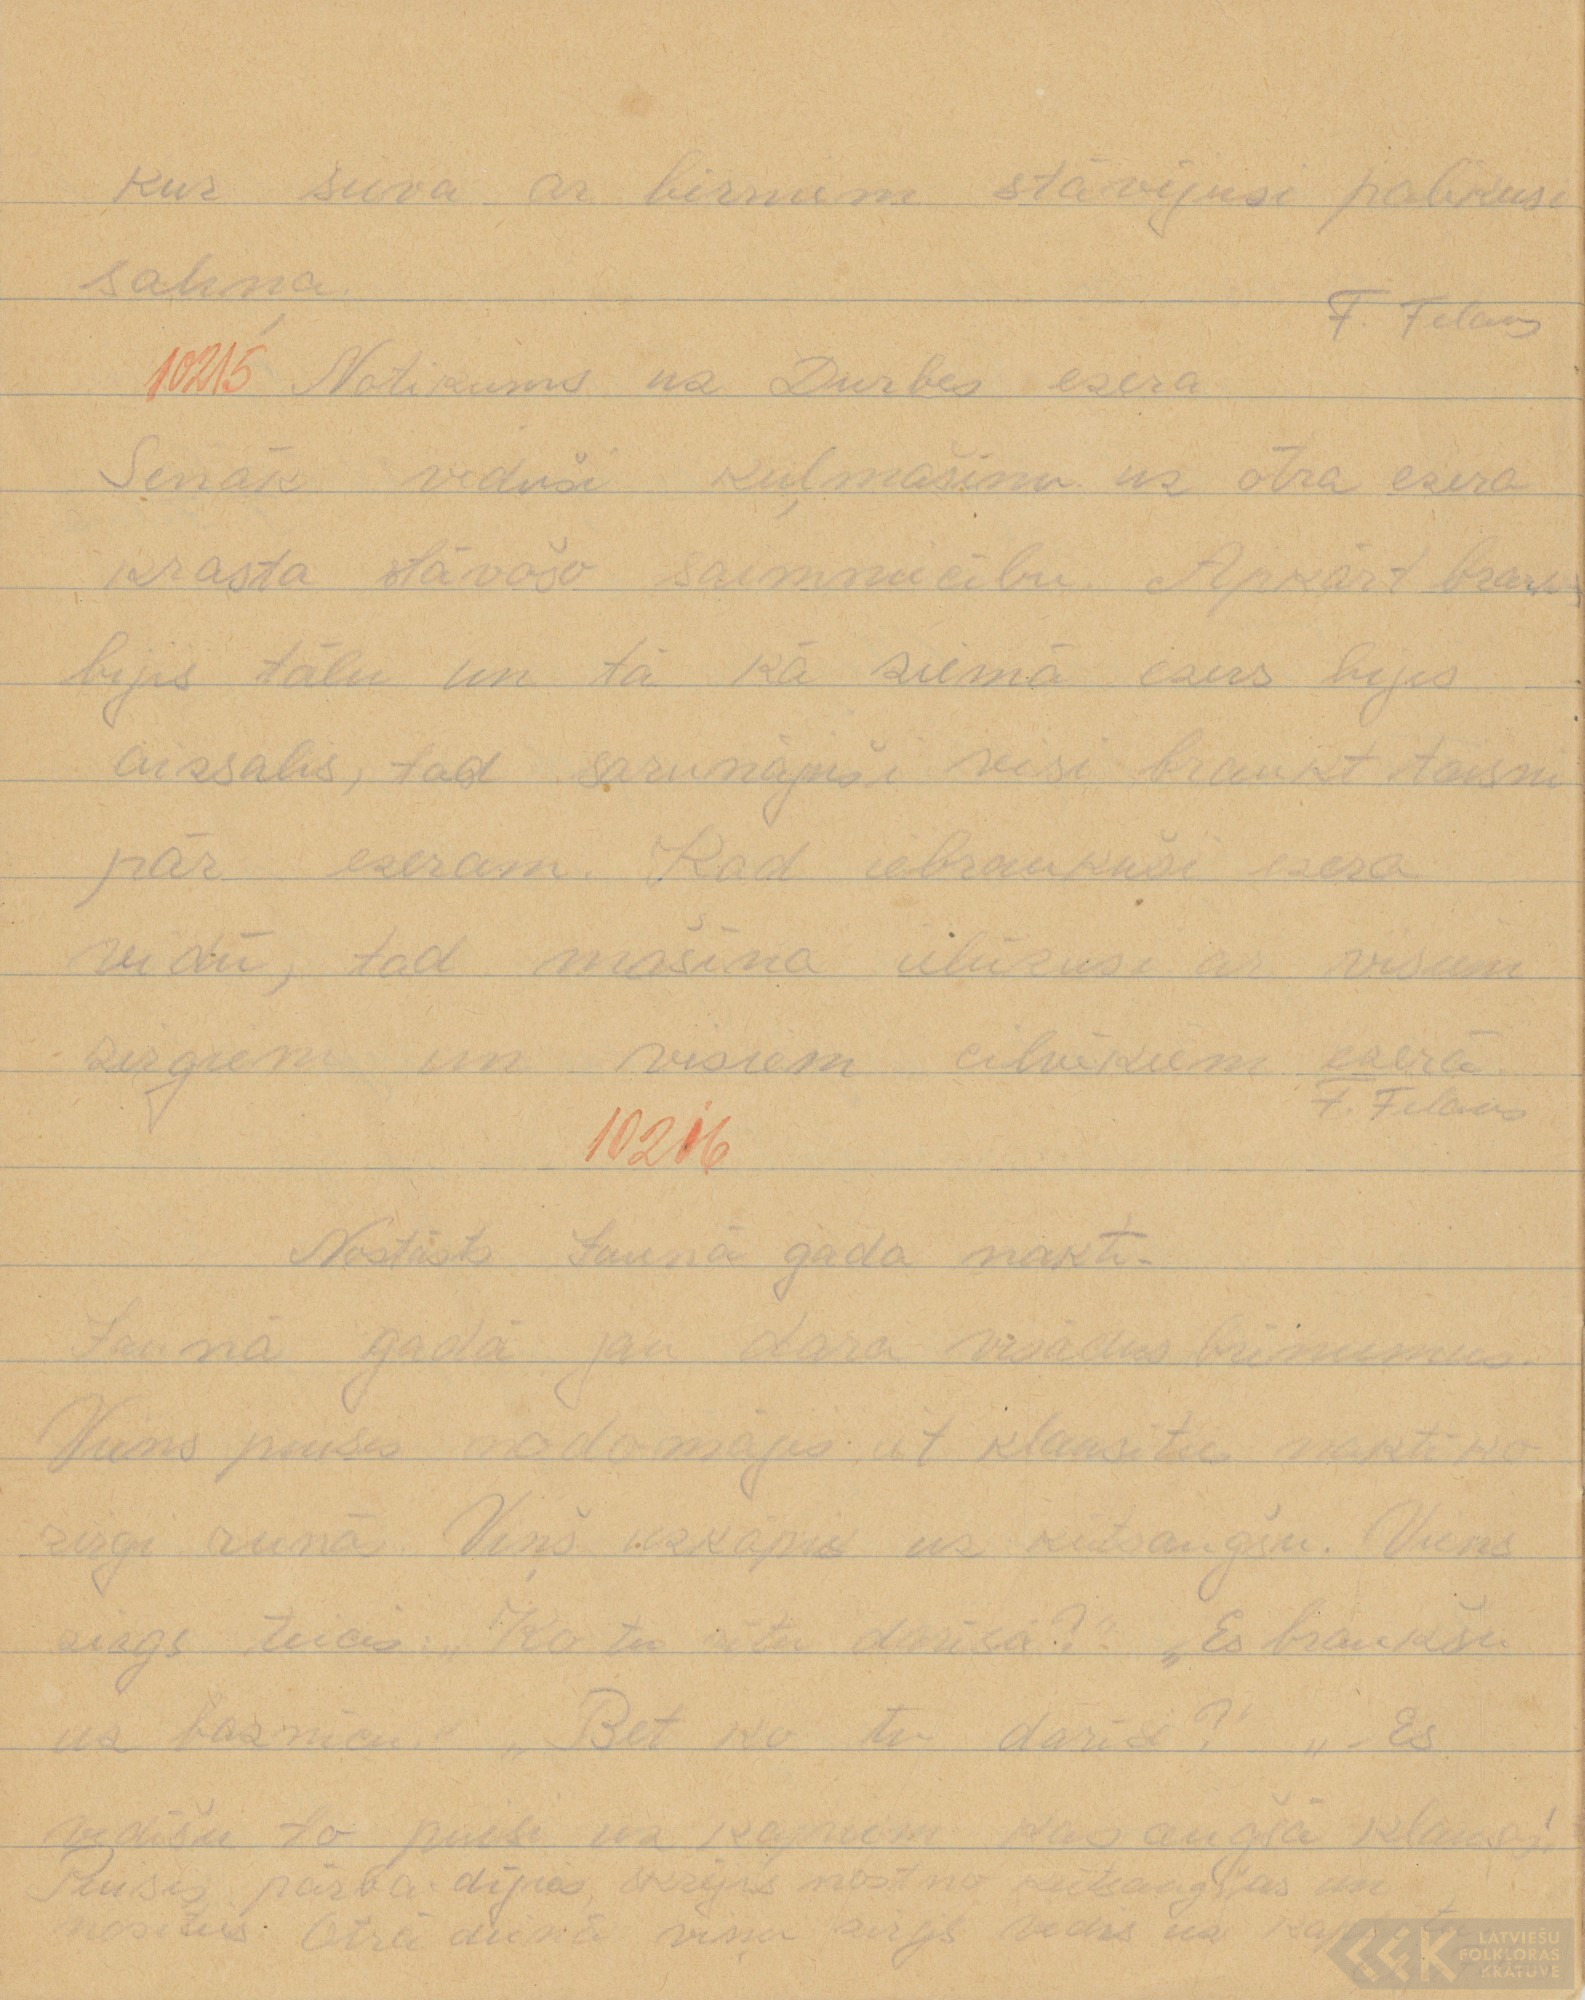 kur sieva ar bērniem stāvējusi palikusi
saliņa.
F. Felaus
10215 Notikums uz Durbes ezera
Senāk veduši kuļmašinu uz otra ezera
krasta stāvošo saimniecību. Apkārt braukt
bijis tālu un tā kā ziemā ezers bijis
aizsalis, tad sarunājuši visi braukt taisni
pār ezeram. Kad iebraukuši ezera
vidū, tad mašīna ielūzusi ar visiem
zirgiem un visiem cilvēkiem ezerā.
F. Felaus
10216
Nostāsts Jaunā gada naktī-
Jaunā gadā jau dara visādus brīnumus.
Viens puisis nodomājis iet klausīties naktī ko
zirgi runā. Viņš uzkāpis uz kūtsaugšu. Viens
zirgs teicis: „Ko tu rītu darīsi?" „Es braukšu
uz baznīcu." „Bet ko tu darīsi?" „Es
vedīšu to puisi uz kapiem kas augšā klausj!
Puisis pārbadījies, skrējis nost no kūtsaugšas un
nosities. Otrā dienā viņu zirgs vedis uz
LATVIEŠU
FOLKLORAS
KRĀTUVE